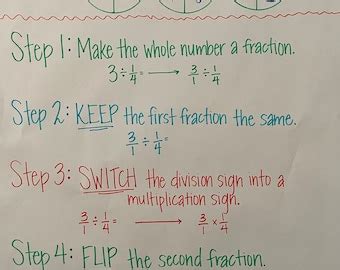 Step 1: Make the whole number a fraction.
3 ÷ 1/4 = → 3/1 ÷ 1/4
Step 2: KEEP the first fraction the same.
3/1 ÷ 1/4 =
Step 3: SWITCH the division sign into a
multiplication sign.
3/1 ÷ 1/4 = → 3/1 × 1/4
Step 4: FLIP the second fraction.